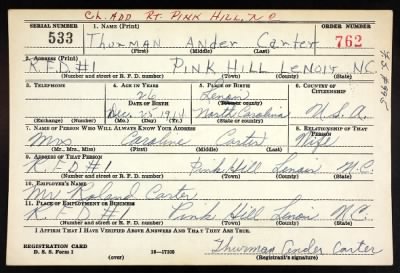 Ch. Add Rt. Pink Hill, N C
SERIAL NUMBER 1. NAME (Print) ORDER NUMBER
533 Thurman Ander Carter 762
(First) (Middle) (Last)
2. ADDRESS (Print)
R.F.D #1 Pink Hill Lenoir N.C.
(Number and street or R. F. D. number) (Town) (County) (State)
3. TELEPHONE 4. AGE IN YEARS 5. PLACE OF BIRTH 6. COUNTRY OF CITIZENSHIP
26 Lenoir
DATE OF BIRTH (Town or county)
Dec. 25 1914 North Carolina U.S.A.
(Exchange) (Number) (Mo.) (Day) (Yr.) (State or country)
7. NAME OF PERSON WHO WILL ALWAYS KNOW YOUR ADDRESS 8. RELATIONSHIP OF THAT PERSON
Mrs Caroline Carter Wife
(Mr., Mrs., Miss) (First) (Middle) (Last)
9. ADDRESS OF THAT PERSON
R F D #1 Pink Hill Lenoir N.C.
(Number and street or R. F. D. number) (Town) (County) (State)
10. EMPLOYER'S NAME
Mr Roland Carter
11. PLACE OF EMPLOYMENT OR BUSINESS
R.F.D #1 Pink Hill Lenoir N.C.
(Number and street or R. F. D. number) (Town) (County) (State)
I AFFIRM THAT I HAVE VERIFIED ABOVE ANSWERS AND THAT THEY ARE TRUE.
REGISTRATION CARD
D. S. S. Form 1 16—17105 Thurman Ander Carter
(over) (Registrant's signature)